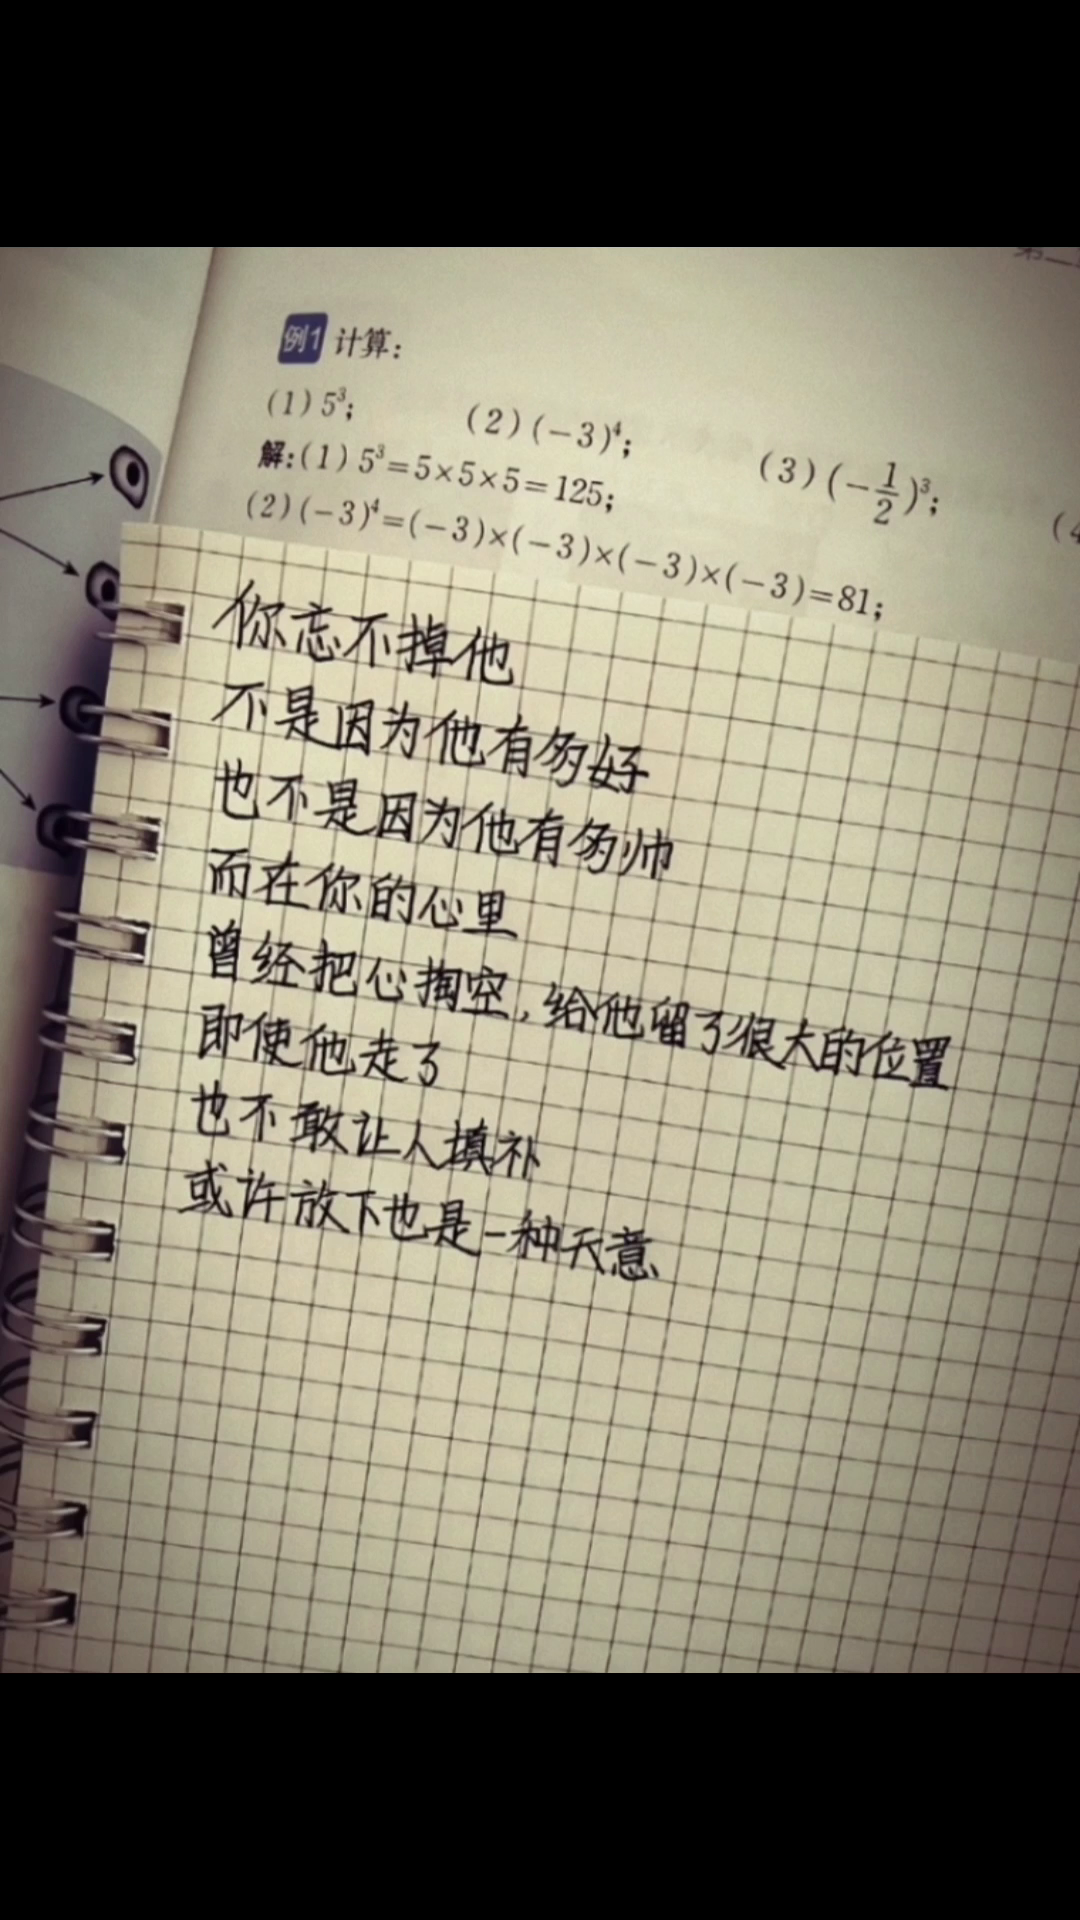 例1 计算：
(1) 5³; (2) (-3)⁴; (3) (-1/2)³;
解：(1) 5³=5×5×5=125;
(2) (-3)⁴=(-3)×(-3)×(-3)×(-3)=81;
你忘不掉他
不是因为他有多好
也不是因为他有多帅
而在你的心里
曾经把心掏空，给他留了很大的位置
即使他走了
也不敢让人填补
或许放下也是一种天意